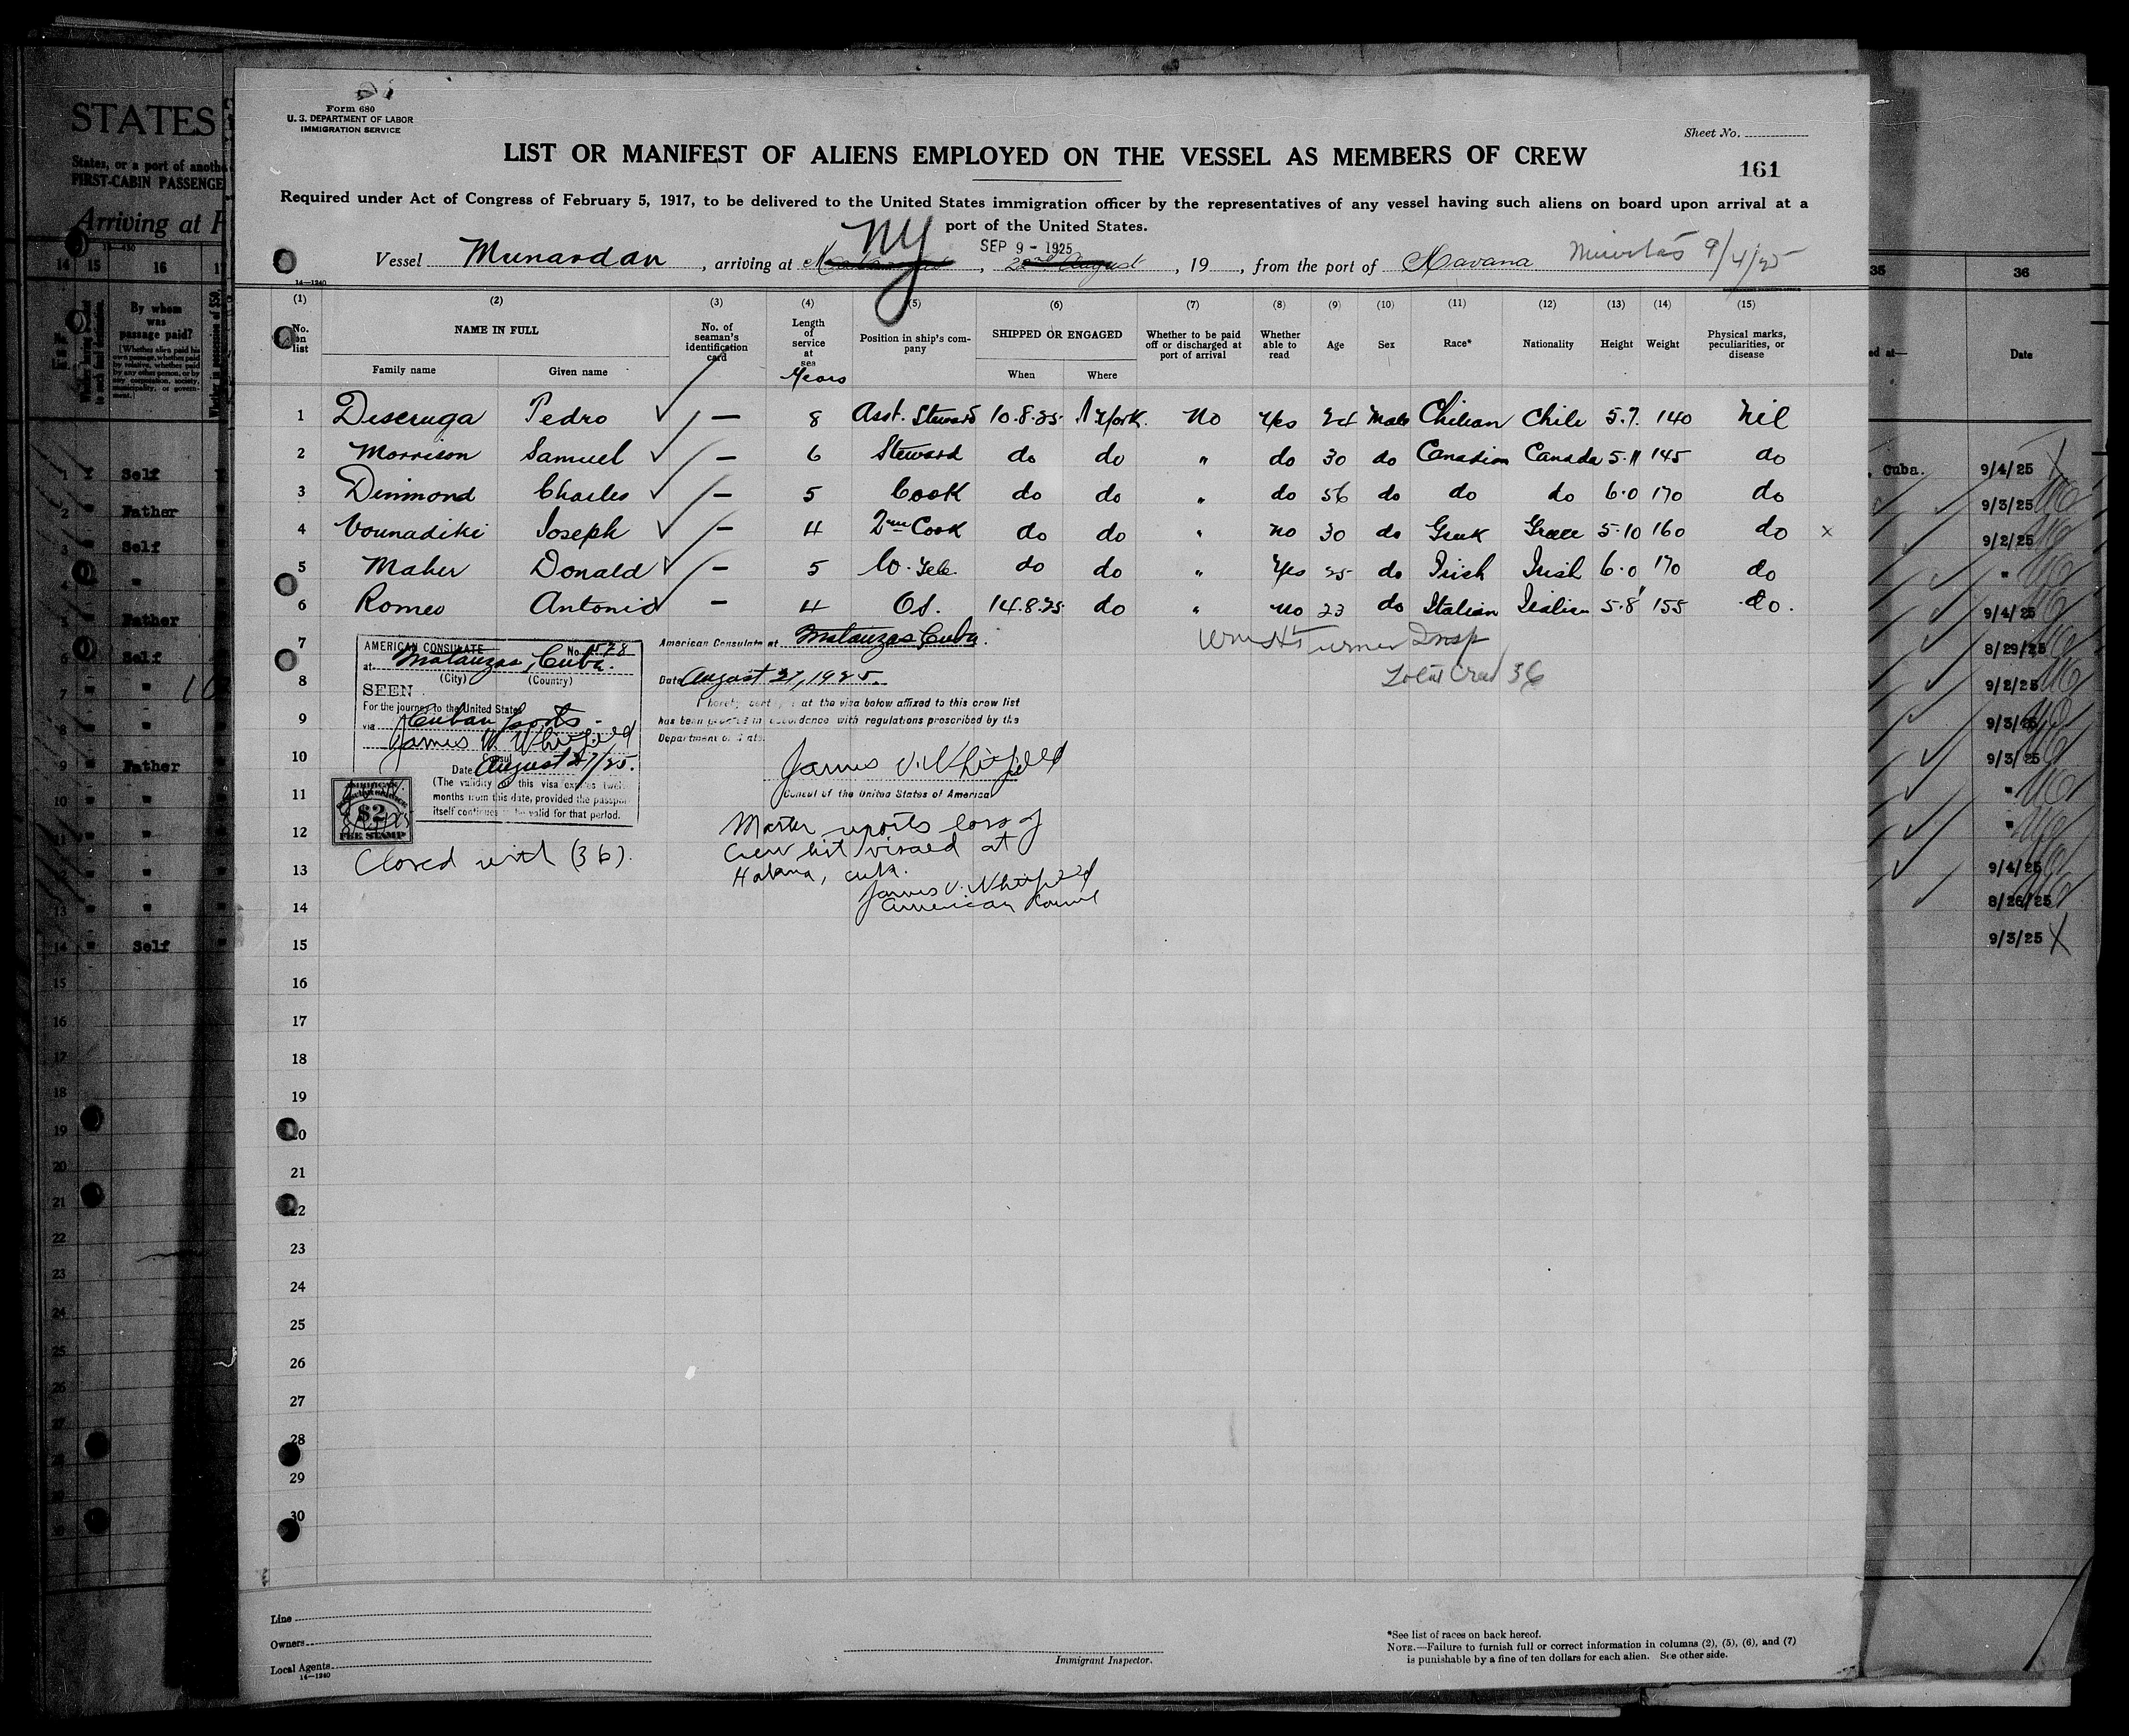 Form 680
U. S. DEPARTMENT OF LABOR
IMMIGRATION SERVICE
Sheet No.
LIST OR MANIFEST OF ALIENS EMPLOYED ON THE VESSEL AS MEMBERS OF CREW
161
Required under Act of Congress of February 5, 1917, to be delivered to the United States immigration officer by the representatives of any vessel having such aliens on board upon arrival at a
port of the United States.
NY SEP 9 - 1925
Vessel Munardan, arriving at , 22nd August, 19 , from the port of Havana 9/4/25
14—1240
(1) (2) (3) (4) (5) (6) (7) (8) (9) (10) (11) (12) (13) (14) (15)
No. on list NAME IN FULL Family name Given name No. of seaman's identification card Length of service at sea Years Position in ship's company SHIPPED OR ENGAGED When Where Whether to be paid off or discharged at port of arrival Whether able to read Age Sex Race* Nationality Height Weight Physical marks, peculiarities, or disease
1 Desceruga Pedro — 8 Asst. Steward 10.8.25 N York. No Yes 24 Male Chilean Chile 5.7. 140 Nil
2 Morrison Samuel — 6 Steward do do " do 30 do Canadian Canada 5.11 145 do
3 Dinmond Charles — 5 Cook do do " do 56 do do do 6.0 170 do
4 Vounadiki Joseph — 4 2nd Cook do do " no 30 do Greek Greece 5.10 160 do x
5 Maher Donald — 5 W. Tele. do do " Yes 25 do Irish Irish 6.0 170 do
6 Romeo Antonio — 4 O.S. 14.8.25 do " no 23 do Italian Italian 5.8 155 do.
7
8
9
10
11
12
13
14
15
16
17
18
19
20
21
22
23
24
25
26
27
28
29
30
AMERICAN CONSULATE No. 578
at Matanzas, Cuba.
(City) (Country)
SEEN
For the journey to the United States
via Cuban Ports
James V. Whitfield
Consul
Date August 27/25.
(The validity of this visa expires twelve
months from this date, provided the passport
itself continues to be valid for that period.
$2
FEE STAMP
Closed with (36).
American Consulate at Matanzas, Cuba.
Date August 27, 1925.
I hereby certify that the visa below affixed to this crew list
has been granted in accordance with regulations prescribed by the
Department of State.
James V. Whitfield
Consul of the United States of America
Master reports loss of
Crew list visaed at
Habana, Cuba.
James V. Whitfield
American Consul
Wm H Turner Insp
Total Crew 36
Line
Owners
Local Agents
14—1240
Immigrant Inspector.
*See list of races on back hereof.
NOTE.—Failure to furnish full or correct information in columns (2), (5), (6), and (7)
is punishable by a fine of ten dollars for each alien. See other side.
STATES
States, or a port of anothe
FIRST-CABIN PASSENGE
Arriving at
14 15 16
By whom was passage paid?
1 Self
2 " Father
3 " Self
4 " "
5 " Father
6 " Self
7 " "
8 " "
9 " Father
10 " "
11 " "
12 " "
13 " "
14 " Self
15
16
17
18
19
20
21
22
23
24
25
26
27
35 36
ed at— Date
, Cuba. 9/4/25
9/3/25
9/2/25
"
9/4/25
8/29/25
9/2/25
9/3/25
9/3/25
"
"
9/4/25
8/26/25
9/3/25